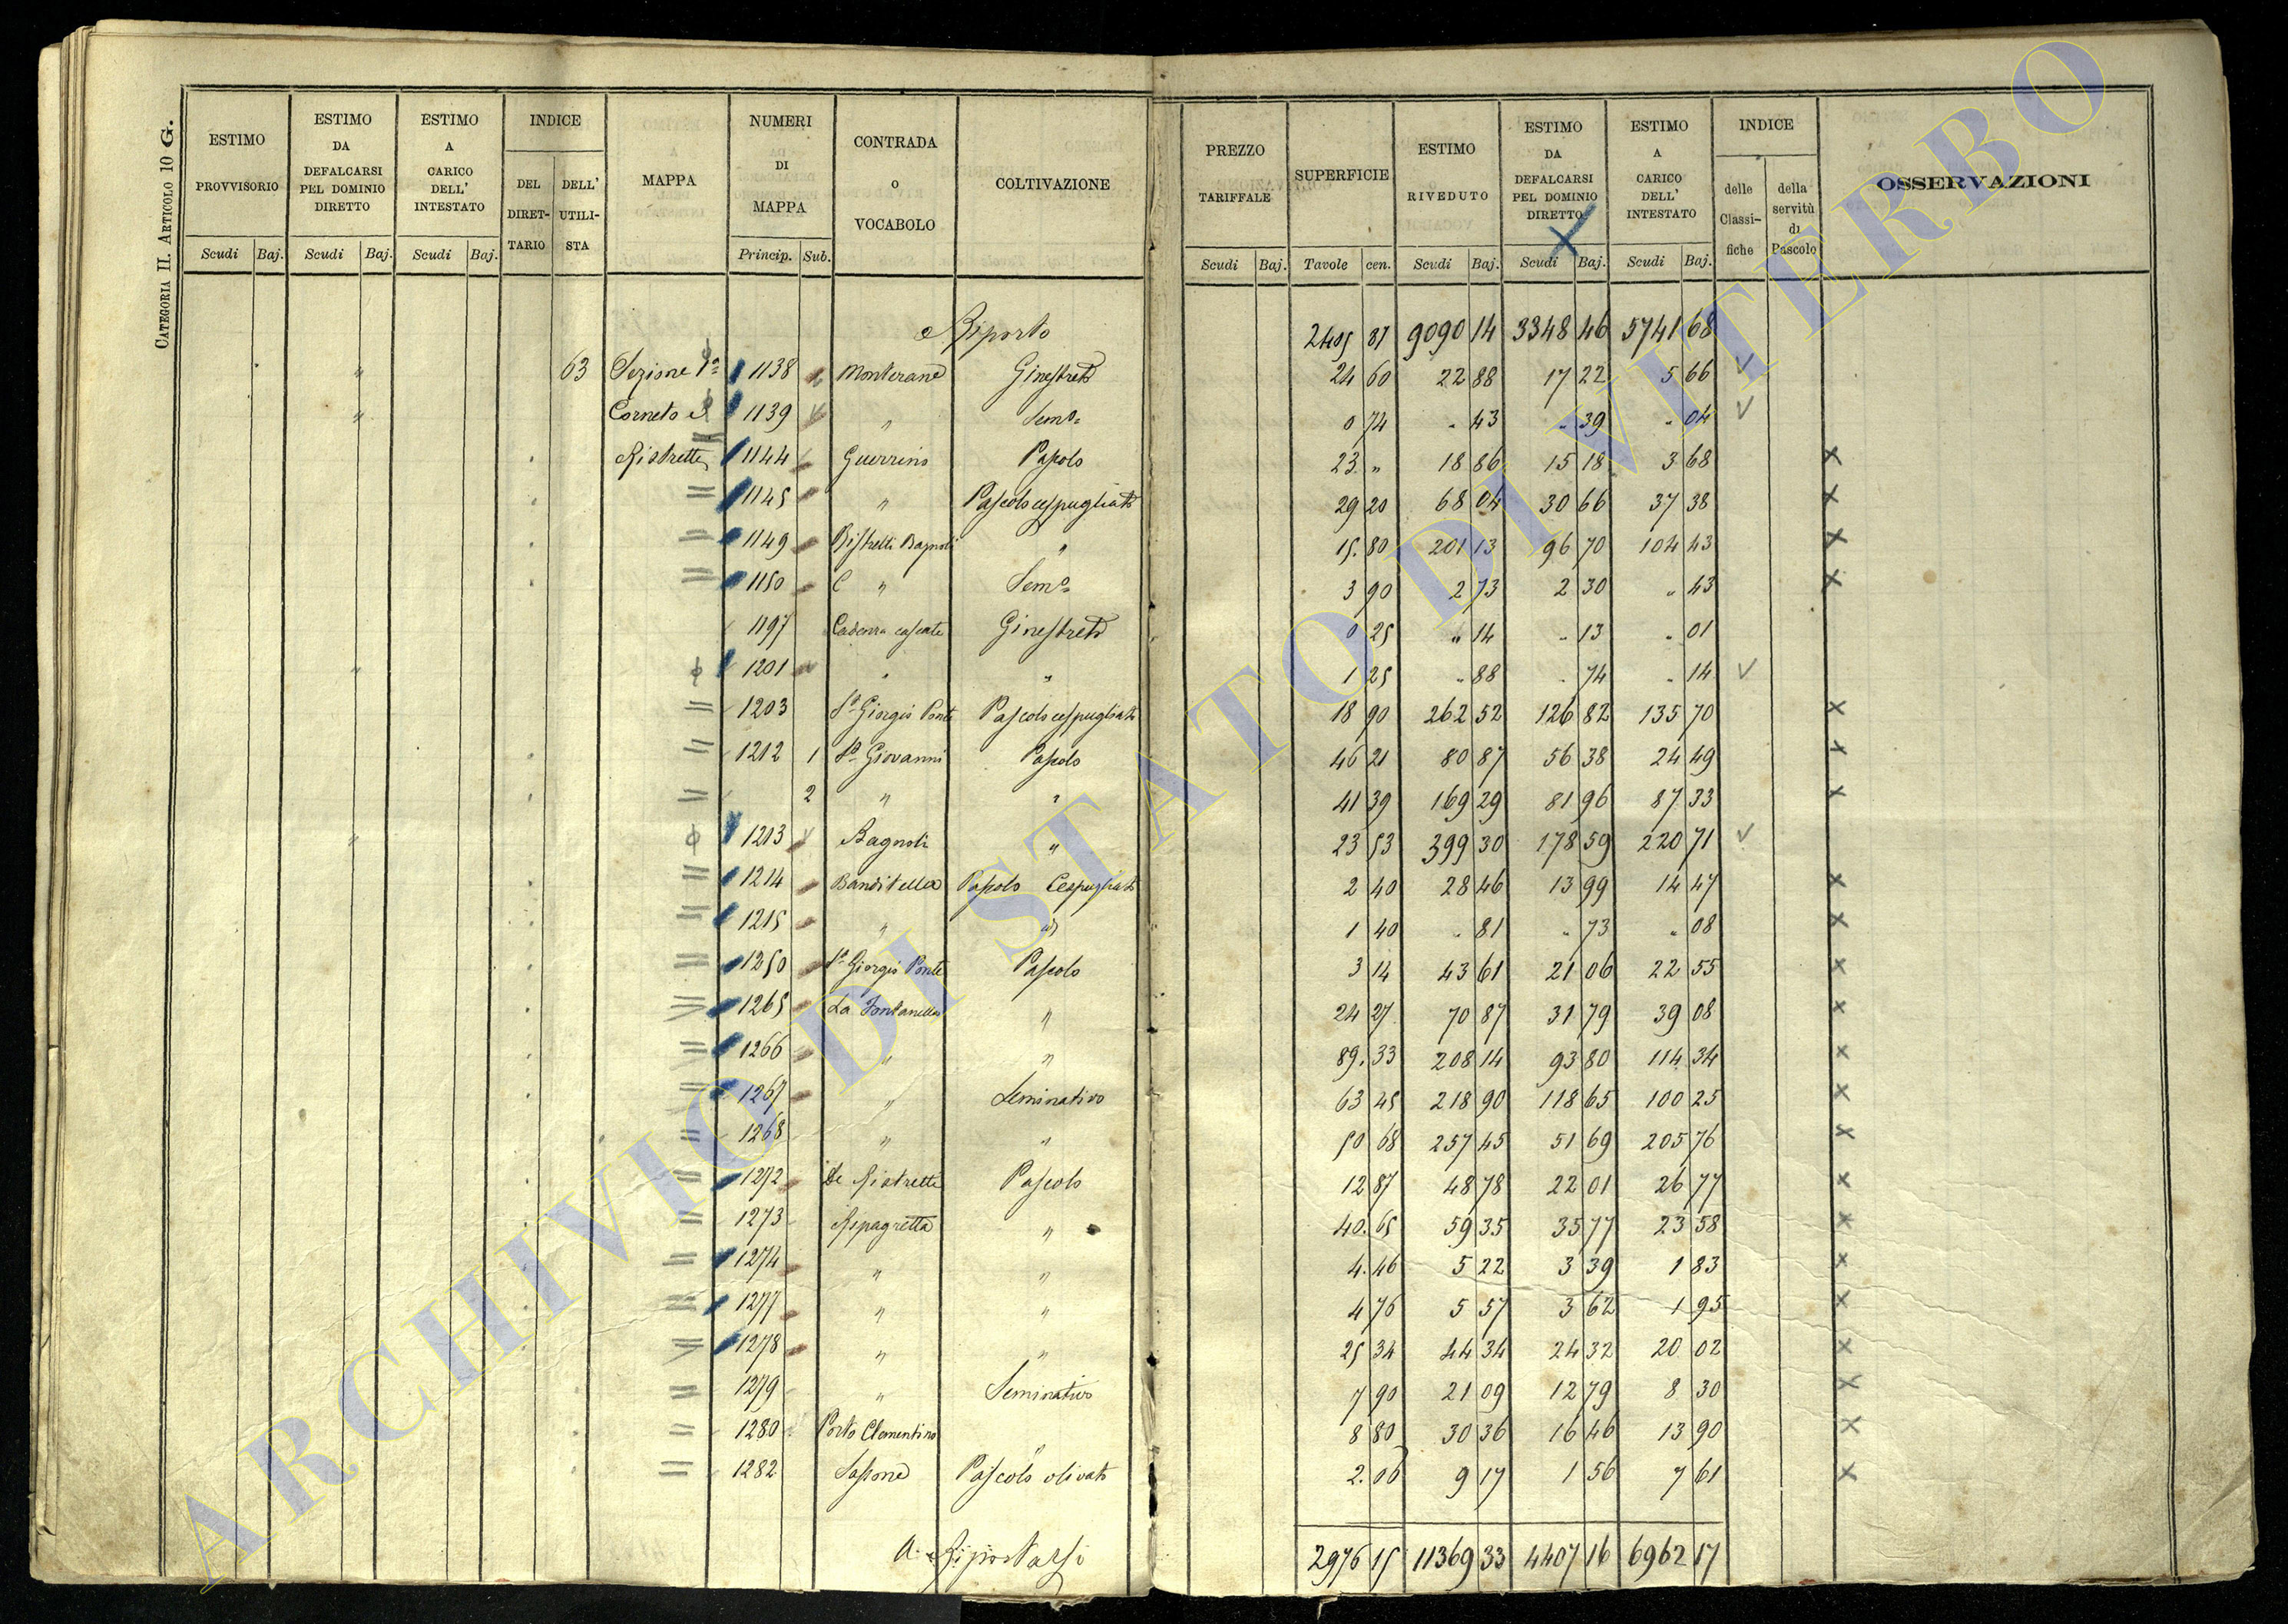 CATEGORIA II. ARTICOLO 10 G.
ESTIMO PROVVISORIO | ESTIMO DA DEFALCARSI PEL DOMINIO DIRETTO | ESTIMO A CARICO DELL' INTESTATO | INDICE DEL DIRETTARIO | DELL' UTILISTA | MAPPA | NUMERI DI MAPPA | CONTRADA O VOCABOLO | COLTIVAZIONE | PREZZO TARIFFALE | SUPERFICIE | ESTIMO RIVEDUTO | ESTIMO DA DEFALCARSI PEL DOMINIO DIRETTO | ESTIMO A CARICO DELL' INTESTATO | INDICE delle Classifiche | della servitù di Pascolo | OSSERVAZIONI
Scudi Baj. Scudi Baj. Scudi Baj. Princip. Sub. Scudi Baj. Tavole cen. Scudi Baj. Scudi Baj. Scudi Baj.
Riporto 2405 81 9090 14 3348 46 5741 68
63 Sezione 1a 1138 Monterana Ginestreto 24 60 22 88 17 22 5 66 V
Corneto 1139 " Semo 0 74 " 43 " 39 " 04 V
Ristretto 1144 Guerrino Pascolo 23 " 18 86 15 18 3 68 X
1145 " Pascolo cespugliato 29 20 68 04 30 66 37 38 X
1149 Ristretti Bagnoli " 15. 80 201 13 96 70 104 43 X
1150 " Semo 3 90 2 73 2 30 " 43 X
1197 Ginestreto 0 25 " 14 " 13 " 01
1201 " " 1 25 " 88 " 74 " 14 V
1203 So Giorgio Ponte Pascolo cespugliato 18 90 262 52 126 82 135 70 X
1212 1 So Giovanni Pascolo 46 21 80 87 56 38 24 49 X
2 " " 41 39 169 29 81 96 87 33 X
1213 Bagnoli " 23 53 399 30 178 59 220 71 V
1214 Banditella Pascolo Cespugliato 2 40 28 46 13 99 14 47 X
1215 " id 1 40 " 81 " 73 " 08 X
1250 So Giorgio Ponte Pascolo 3 14 43 61 21 06 22 55 X
1265 La Fontanella " 24 27 70 87 31 79 39 08 X
1266 " " 89. 33 208 14 93 80 114 34 X
1267 " Seminativo 63 45 218 90 118 65 100 25 X
1268 " " 50 68 257 45 51 69 205 76 X
1272 Le Ristrette Pascolo 12 87 48 78 22 01 26 77 X
1273 Spagretta " 40. 65 59 35 35 77 23 58 X
1274 " " 4. 46 5 22 3 39 1 83 X
1277 " " 4 76 5 57 3 62 1 95 X
1278 " " 25 34 44 34 24 32 20 02 X
1279 " Seminativo 7 90 21 09 12 79 8 30 X
1280 Porto Clementino " 8 80 30 36 16 46 13 90 X
1282 Pascolo olivato 2. 06 9 17 1 56 7 61 X
A Riportarsi 2976 15 11369 33 4407 16 6962 17
ARCHIVIO DI STATO DI VITERBO